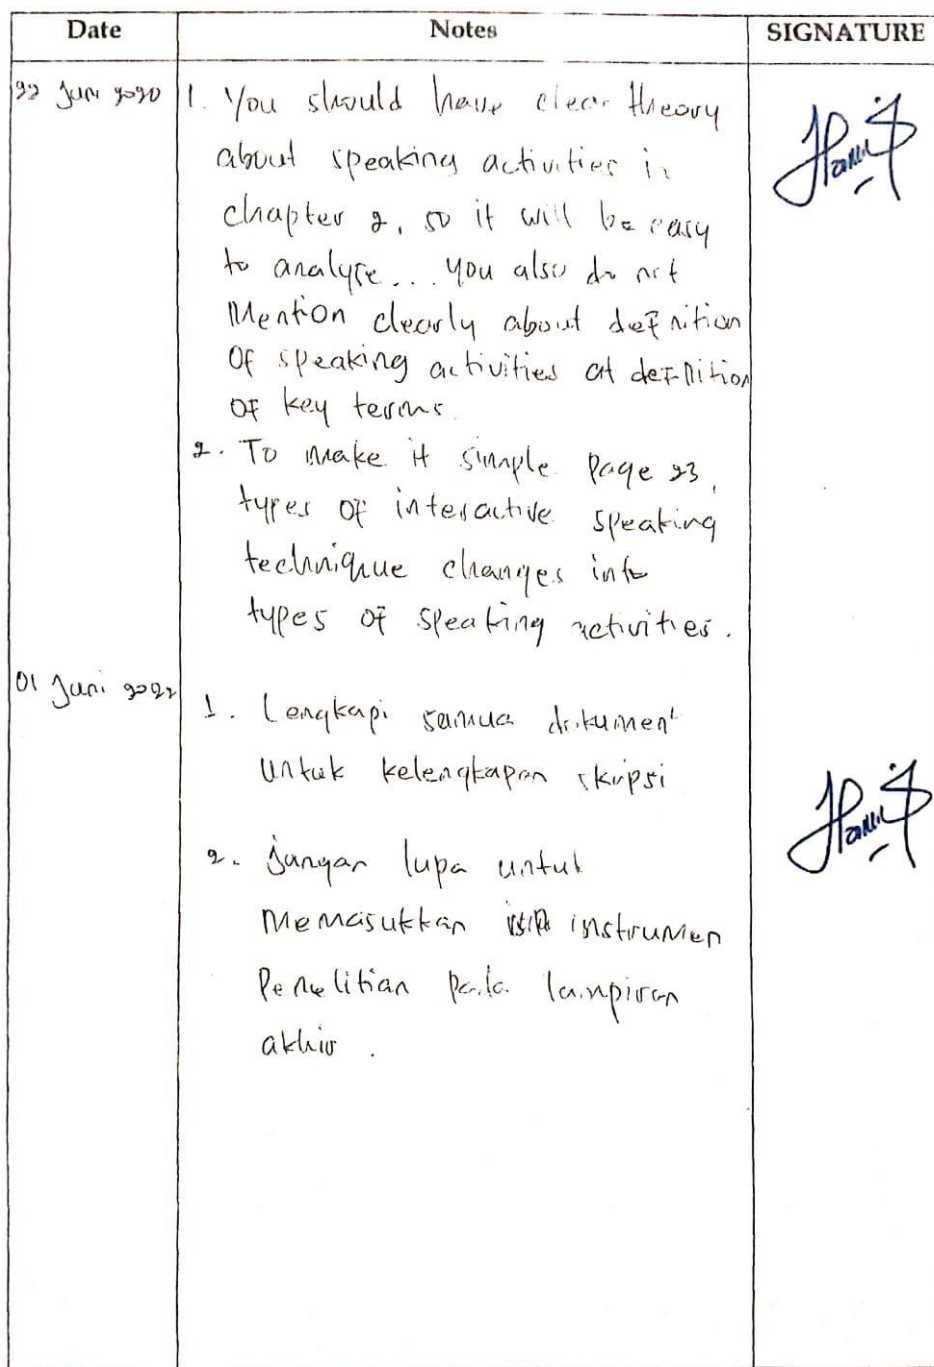 Date Notes SIGNATURE
22 Juni 2020 1. You should have clear theory
about speaking activities in
chapter 2, so it will be easy
to analyse... you also do not
Mention clearly about definition
Of speaking activities at definition
OF key terms
2. To make it simple Page 23,
types of interactive speaking
technique changes into
types of speaking activities.
01 Juni 2022
1. Lengkapi semua dokumen
Untuk kelengkapan skripsi
2. jangan lupa untuk
Memasukkan instrumen
Penelitian pada lampiran
akhir.